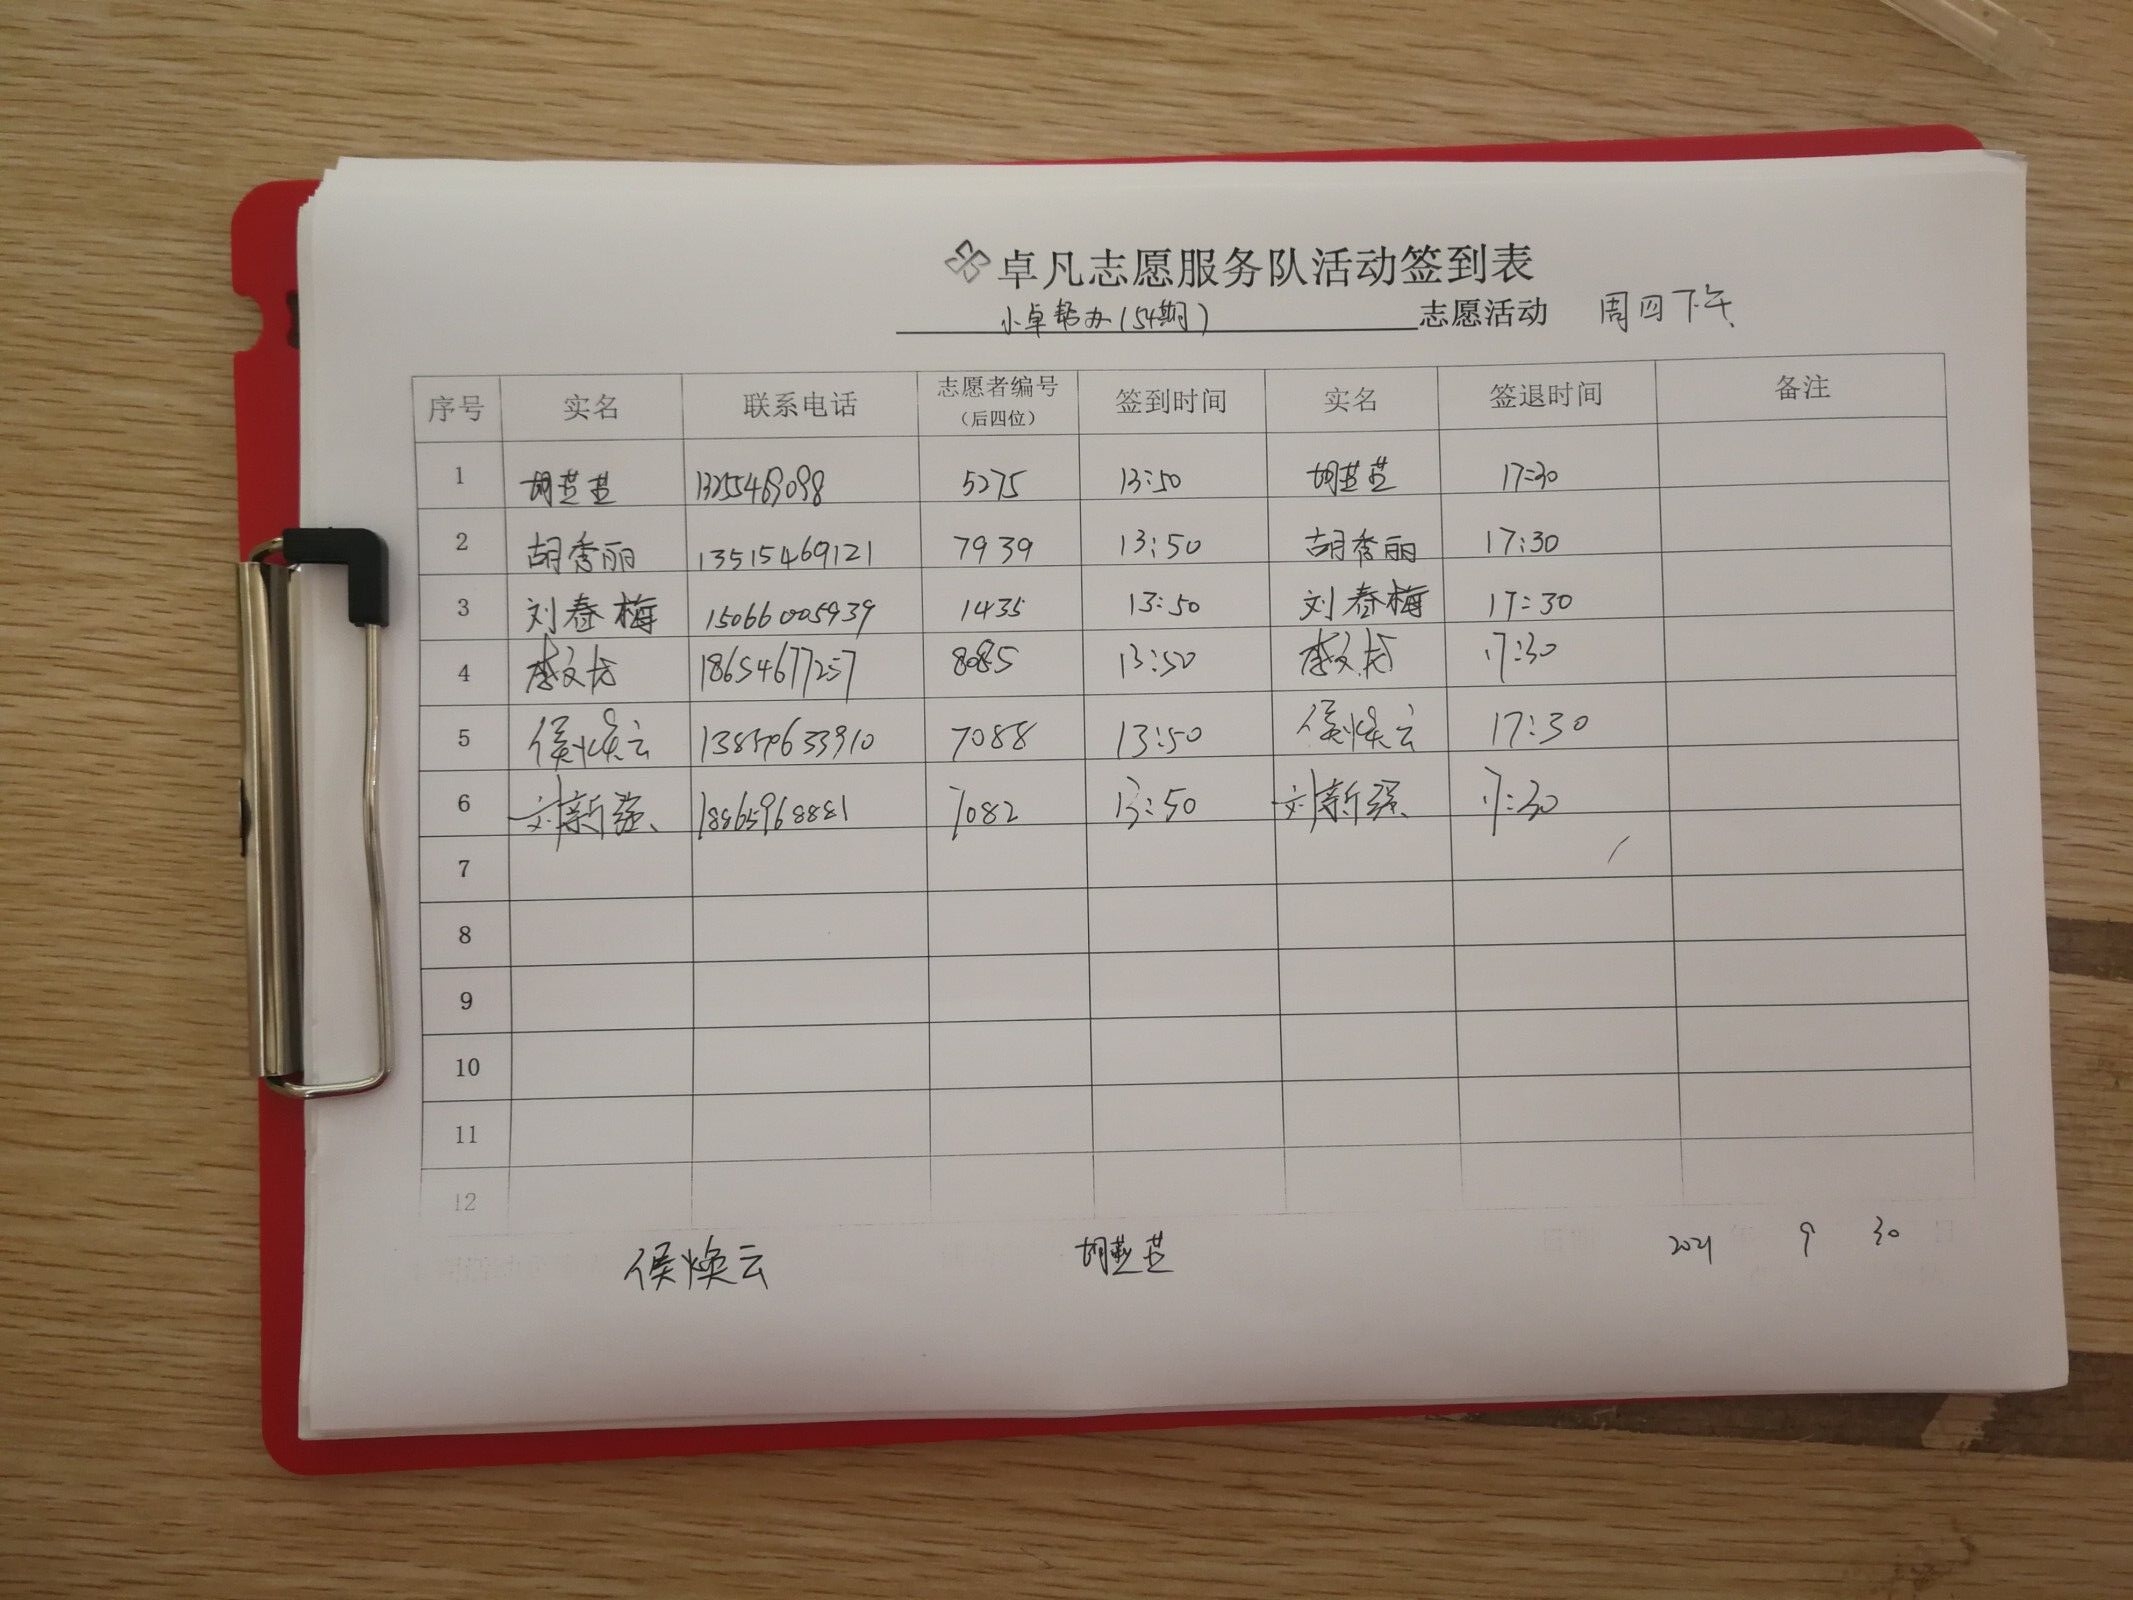 卓凡志愿服务队活动签到表
小卓帮办(54期) 志愿活动 周四下午
序号 实名 联系电话 志愿者编号(后四位) 签到时间 实名 签退时间 备注
1 胡芝芝 13255469098 5275 13:50 胡芝芝 17:30
2 胡秀丽 13515469121 7939 13:50 胡秀丽 17:30
3 刘春梅 15066005939 1435 13:50 刘春梅 17:30
4 李文龙 18654677257 8085 13:50 李文龙 17:30
5 侯焕云 7088 13:50 侯焕云 17:30
6 刘新强 18865968881 7082 13:50 刘新强 17:30
7
8
9
10
11
12
侯焕云 胡芝芝 2021 9 30